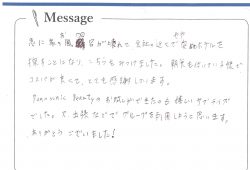 Message
急に家の風呂釜が壊れて 会社の近くで
ホテルを
探すことになり、こちらをみつけました。朝食も付いている様で
コスパが良くて、とても感謝しています。
Panasonic Beautyのお試しができたのも嬉しいサプライズ
でした。又 出張などでグループを利用しようと思います。
ありがとうございました!